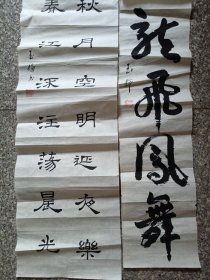 龍飛鳳舞
秋月空明延夜樂
春江深注蕩晨光